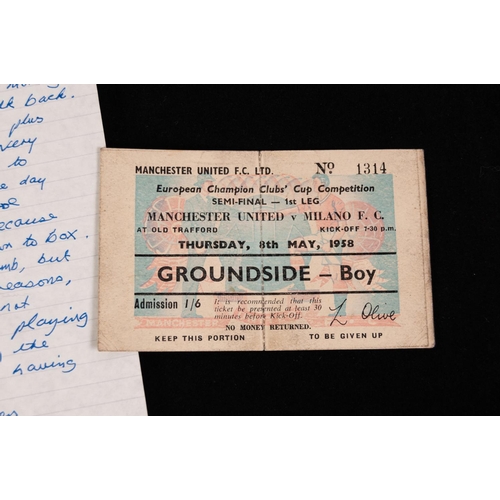 lk back.
plus
very
to
e day
because
n to box.
mb, but
reasons,
not
playing
the
having
MANCHESTER UNITED F.C. LTD. No 1314
European Champion Clubs' Cup Competition
SEMI-FINAL — 1st LEG
MANCHESTER UNITED v MILANO F. C.
AT OLD TRAFFORD KICK-OFF 7-30 p.m.
THURSDAY, 8th MAY, 1958
GROUNDSIDE — Boy
Admission 1/6
It is recommended that this
ticket be presented at least 30
minutes before Kick-Off.
L Olive
MANCHESTER
NO MONEY RETURNED.
KEEP THIS PORTION TO BE GIVEN UP